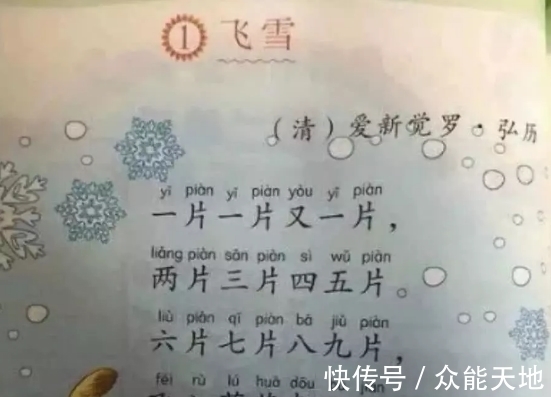 1 飞雪
(清)爱新觉罗·弘历
yī piàn yī piàn yòu yī piàn
一片一片又一片，
liǎng piàn sān piàn sì wǔ piàn
两片三片四五片。
liù piàn qī piàn bā jiǔ piàn
六片七片八九片，
fēi rù lú huā dōu
快传号／众能天地